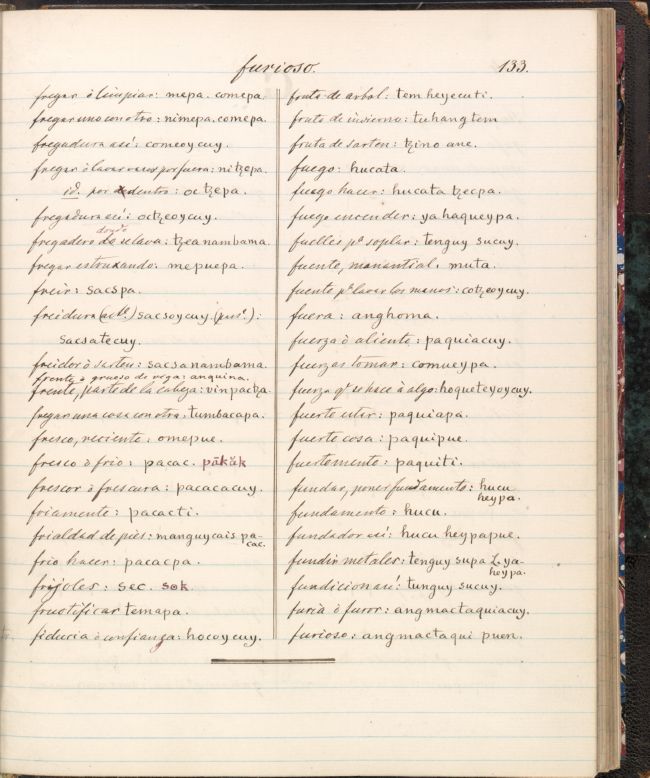 furioso.
133.
fregar ò limpiar: mepa. comepa.
fregar uno con otro: nimepa. comepa.
fregadura así: comeoycuy.
fregar ò lavar vasos por fuera: nitzepa.
id. por dentro: octzepa.
fregadura así: octzeoycuy.
fregadero donde se lava: tzeanambama.
fregar estruxando: mepuepa.
freir: sacspa.
freidura (act.) sacsoycuy. (pas.):
sacsatecuy.
freidor ò sarten: sacsanambama.
frente ò grueso de viga: anquina.
frente, parte de la cabeza: vinpactza.
fregar una cosa con otra: tumbacapa.
fresco, reciente: omepue.
fresco ò frio: pacac. păkăk
frescor ò frescura: pacacacuy.
friamente: pacacti.
frialdad de piès: manguycais pa-
cac.
frio hacer: pacacpa.
frijoles: sec. sǝk.
fructificar temapa.
fiducia ò confianza: hocoycuy.
fruta de arbol: tem heyecuti.
fruta de invierno: tuhangtem
fruta de sarten: tzino ane.
fuego: hucata.
fuego hacer: hucata tzecpa.
fuego encender: ya haqueypa.
fuelles pa. soplar: tenguy sucuy.
fuente, manantial: muta.
fuente pa. lavar las manos: cotzeoycuy.
fuera: anghoma.
fuerza ò aliento: paquiacuy.
fuerzas tomar: comueypa.
fuerza qe. se hace à algo: hoqueteyoycuy.
fuerte estar: paquiapa.
fuerte cosa: paquipue.
fuertemente: paquiti.
fundar, poner fundamento: hucu
heypa.
fundamento: hucu.
fundador así: hucu heypapue.
fundir metales: tenguy supa L. ya-
heypa.
fundicion así: tunguy sucuy.
furià ò furor: angmactaquiacuy.
furioso: angmactaqui puen.